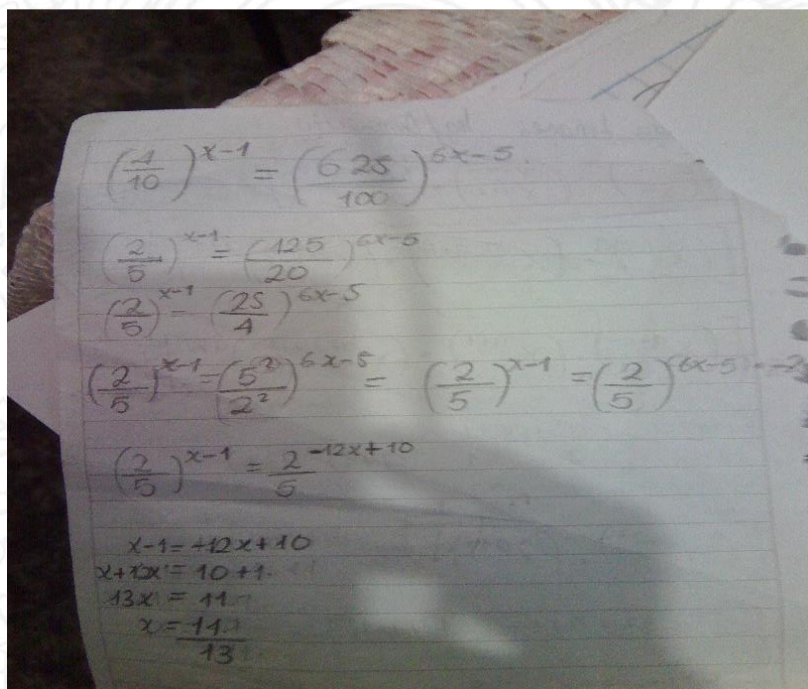 (4/10)^x-1 = (625/100)^6x-5
(2/5)^x-1 = (125/20)^6x-5
(2/5)^x-1 = (25/4)^6x-5
(2/5)^x-1 = (5²/2²)^6x-5 = (2/5)^x-1 = (2/5)^(6x-5 · -2
(2/5)^x-1 = 2/5^-12x+10
x-1=-12x+10
x+12x = 10+1
13x = 11
x = 11/13